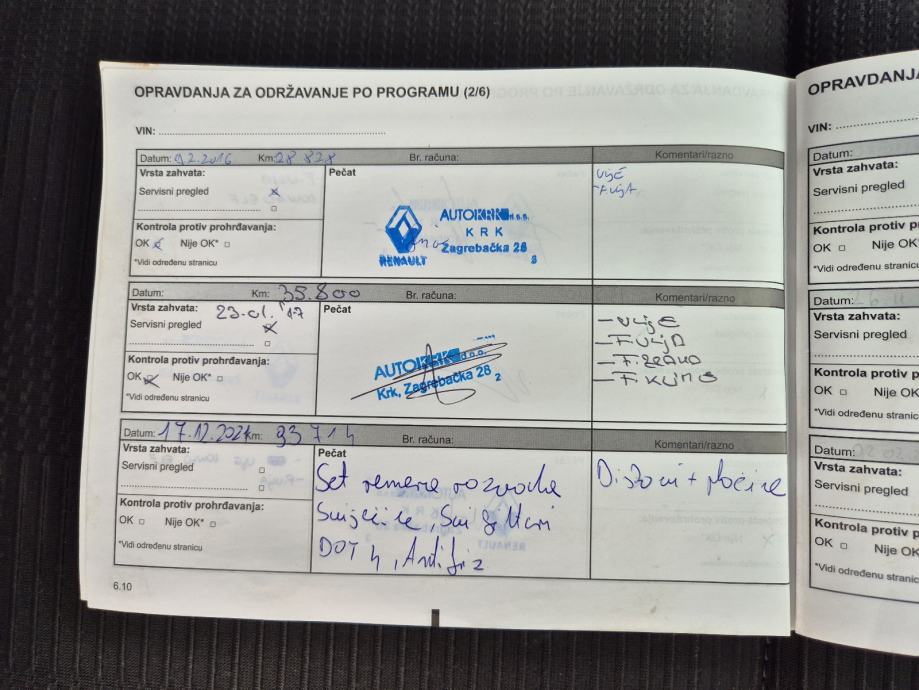 OPRAVDANJA ZA ODRŽAVANJE PO PROGRAMU (2/6)
VIN:
Datum: 02.2016 Km: 28 828 Br. računa: Komentari/razno
Vrsta zahvata:
Servisni pregled
Kontrola protiv prohrđavanja:
OK Nije OK*
*Vidi određenu stranicu
Pečat
AUTOKRK d.o.o.
KRK
Zagrebačka 26
RENAULT
3
ULJE
Datum: Km: 35.800 Br. računa: Komentari/razno
Vrsta zahvata: 23.01.'17
Servisni pregled
Kontrola protiv prohrđavanja:
OK Nije OK*
*Vidi određenu stranicu
Pečat
AUTOKRK d.o.o.
Krk, Zagrebačka 26
2
- ULJE
- F. ULJA
- F. ZRAKA
- F. KLIME
Datum: 17.12.2021 Km: 93714 Br. računa: Komentari/razno
Vrsta zahvata:
Servisni pregled
Kontrola protiv prohrđavanja:
OK Nije OK*
*Vidi određenu stranicu
Pečat
Set remena razvoda
Svijećice, Svi filteri
DOT 4, Antifriz
Diskovi + pločice
6.10
OPRAVDANJA
VIN:
Datum:
Vrsta zahvata:
Servisni pregled
Kontrola protiv p
OK Nije OK
*Vidi određenu st
Datum:
Vrsta zahvata:
Servisni pregled
Kontrola protiv p
OK Nije OK
*Vidi određenu st
Datum:
Vrsta zahvata:
Servisni pregled
Kontrola protiv p
OK Nije OK
*Vidi određenu st